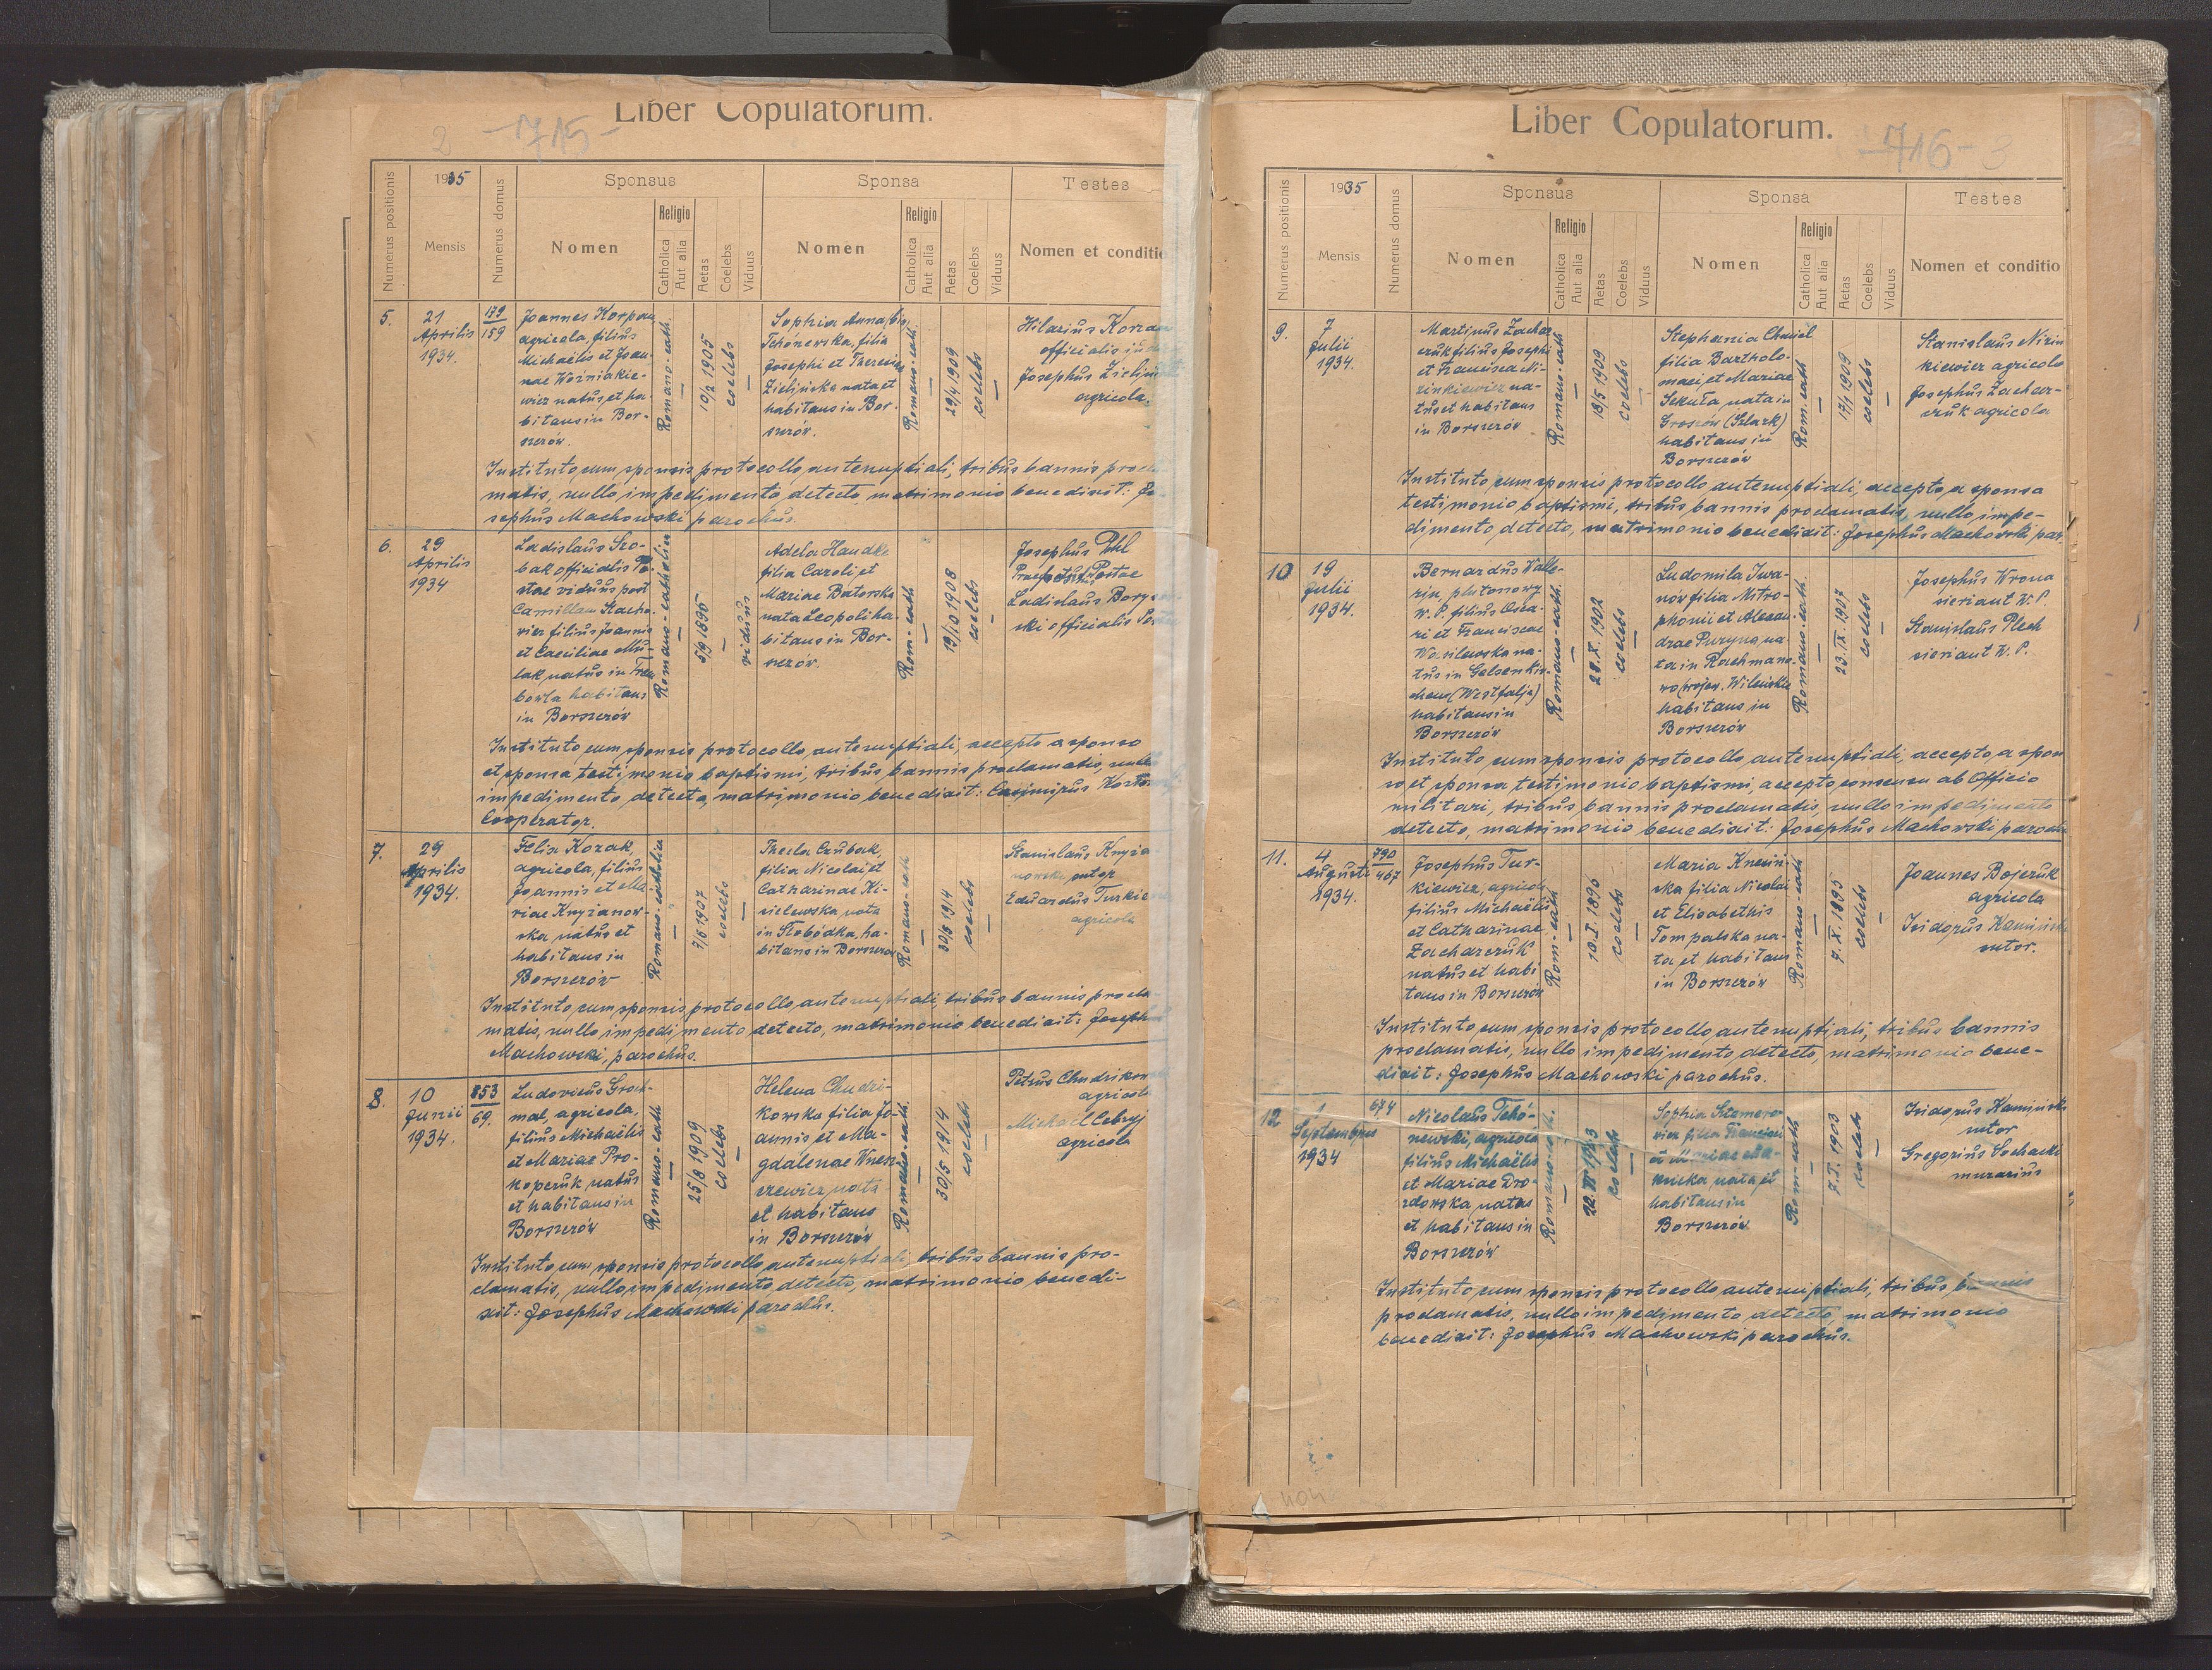 2 -715-
Liber Copulatorum.
Numerus positionis
1935
Mensis
Numerus domus
Sponsus
Nomen
Religio
Catholica
Aut alia
Aetas
Coelebs
Viduus
Sponsa
Nomen
Religio
Catholica
Aut alia
Aetas
Coelebs
Viduus
Testes
Nomen et conditio
5.
21
Aprilis
1934.
179
159
Joannes Korpan,
agricola, filius
Michaëlis et Joan-
nae Woźniakie-
wicz natus et ha-
bitans in Bor-
szczów.
Romano-cath.
10/2 1905
coelebs
Sophia Anna
filia
Josephi et Theresiae
Zielińska nata et
habitans in Bor-
szczów.
Romano-cath.
29/4 1909
coelebs
Hilarius
officialis
Josephus
agricola.
Instituto cum sponsis protocollo antenuptiali, tribus bannis procla-
matis, nullo impedimento detecto matrimonio benedixit: Jo-
sephus Machowski parochus.
6.
29
Aprilis
1934
Ladislaus Szo-
bak officialis Po-
stae viduus post
Camillam Stacho-
wicz filius Joannis
et Caeciliae Mu-
lak, natus in Trem-
bowla habitans
in Borszczów
Romano-catholica
5/9 1896
viduus
Adela Handke
filia Caroli et
Mariae Batorska
nata Leopoli ha-
bitans in Bor-
szczów.
Rom-cath
19/10 1908
coelebs
Josephus Pohl
Postae
Ladislaus
ski officialis
Instituto cum sponsis protocollo antenuptiali, accepto a sponso
et sponsa testimonio baptismi, tribus bannis proclamatis, nullo
impedimento detecto, matrimonio benedixit: Casimirus
Cooperator.
7.
29
Aprilis
1934.
Felix Kozak,
agricola, filius
Joannis et Ma-
riae Knyżanow-
ska natus et
habitans in
Borszczów
Romano-catholica
7/6 1907
coelebs
Thecla Czubak,
filia Nicolai et
Catharinae Ki-
sielewska nata
in Słobódka, ha-
bitans in Borszczów
Romano-cath
30/5 1914
coelebs
Stanislaus
nowski, sutor
Eduardus
agricola
Instituto cum sponsis protocollo antenuptiali, tribus bannis procla-
matis, nullo impedimento detecto, matrimonio benedixit: Josephus
Machowski, parochus.
8.
10
Junii
1934.
853
69.
Ludovicus Groch-
mal, agricola,
filius Michaëlis
et Mariae Pro-
koperuk natus
et habitans in
Borszczów
Romano-cath
25/8 1909
coelebs
Helena Chudzi-
kowska filia Jo-
annis et Ma-
gdalenae Wnen-
czewicz nata
et habitans
in Borszczów
Romano-cath.
30/5 1914
coelebs
Petrus
agricola
Michaël Cebryj
agricola
Instituto cum sponsis protocollo antenuptiali, tribus bannis pro-
clamatis, nullo impedimento detecto, matrimonio benedi-
xit: Josephus Machowski parochus.
-716- 3
Liber Copulatorum.
Numerus positionis
1935
Mensis
Numerus domus
Sponsus
Nomen
Religio
Catholica
Aut alia
Aetas
Coelebs
Viduus
Sponsa
Nomen
Religio
Catholica
Aut alia
Aetas
Coelebs
Viduus
Testes
Nomen et conditio
9.
7
Julii
1934.
Martinus Zachar-
czuk filius Josephi
et Francisca Ni-
zinkiewicz na-
tus et habitans
in Borszczów
Romano-cath.
18/5 1909
coelebs
Stephania Chmiel
filia Bartholo-
maei et Mariae
Sekuła, nata in
Groszów (Szlązk)
habitans in
Borszczów
Rom. cath
17/1 1909
coelebs
Stanislaus Nizin
kiewicz agricola
Josephus Zachar-
czuk agricola
Instituto cum sponsis protocollo antenuptiali, accepto a sponsa
testimonio baptismi, tribus bannis proclamatis, nullo impe-
dimento detecto, matrimonio benedixit: Josephus Machowski par.
10
19
Julii
1934.
Bernardus
plutonowy
W. P. filius Osca-
ri et Franciscae
Wasilewska na-
tus in Gelsenkir-
chens (Westfalja)
habitans in
Borszczów
Romano-cath.
28. X. 1902
coelebs
Ludomila Iwa-
now filia Mitro-
phonii et Alexan-
drae Puzyna na-
ta in Rachmano-
wo (wojew. Wileńskie
habitans in
Borszczów
Romano-cath.
23. IX. 1907
coelebs
Josephus Wrona
sierżant W. P.
Stanislaus Plech
sierżant W. P.
Instituto cum sponsis protocollo antenuptiali, accepto a spon
so et sponsa testimonio baptismi, accepto consensu ab Officio
militari, tribus bannis proclamatis, nullo impedimento
detecto, matrimonio benedixit: Josephus Machowski paroch
11.
4
Augusti
1934.
790
467
Josephus Tur-
kiewicz, agricola
filius Michaëlis
et Catharinae
Zacharczuk
natus et habi
tans in Borszczów
Rom-cath
10. I. 1896
coelebs
Maria
ska filia Nicolai
et Elisabethis
Tompalska na-
ta et habitans
in Borszczów
Romano-cath
7. X. 1895
coelebs
Joannes Bojczuk
agricola
Isidorus Kamiński
sutor.
Instituto cum sponsis protocollo antenuptiali, tribus bannis
proclamatis, nullo impedimento detecto, matrimonio bene-
dixit: Josephus Machowski parochus.
12
1
Septembris
1934
674
Nicolaus Tchó-
rzewski, agricola
filius Michaëlis
et Mariae Dro-
zdowska natus
et habitans in
Borszczów
Romano-cath.
coelebs
Sophia
filia
et Mariae
nata et
habitans in
Borszczów
Rom-cath
7. I. 1903
coelebs
Isidorus Kamiński
sutor
Gregorius Sochacki
murarius
Instituto cum sponsis protocollo antenuptiali, tribus bannis
proclamatis, nullo impedimento detecto, matrimonio
benedixit: Josephus Machowski parochus.